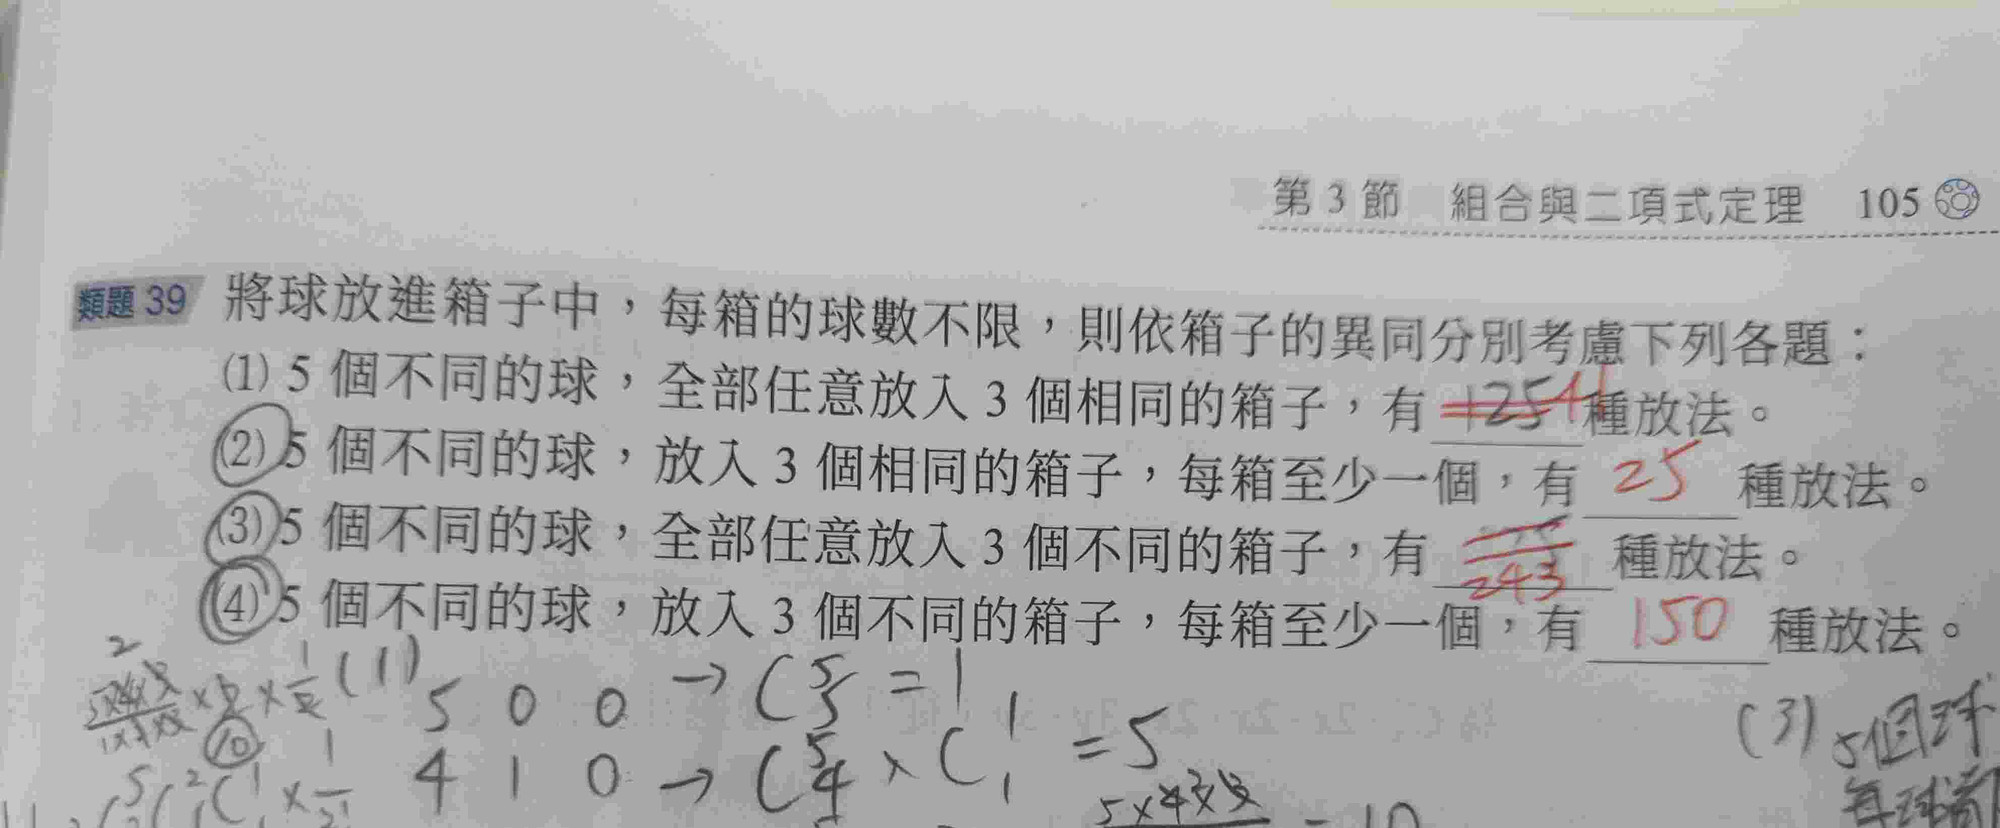 第 3 節 組合與二項式定理 105
類題 39 將球放進箱子中，每箱的球數不限，則依箱子的異同分別考慮下列各題：
(1) 5 個不同的球，全部任意放入 3 個相同的箱子，有 41 種放法。
(2) 5 個不同的球，放入 3 個相同的箱子，每箱至少一個，有 25 種放法。
(3) 5 個不同的球，全部任意放入 3 個不同的箱子，有 243 種放法。
(4) 5 個不同的球，放入 3 個不同的箱子，每箱至少一個，有 150 種放法。
(1) 5 0 0 → C⁵₅ = 1
4 1 0 → C⁵₄ × C¹₁ = 5
(3) 5個球
每球都